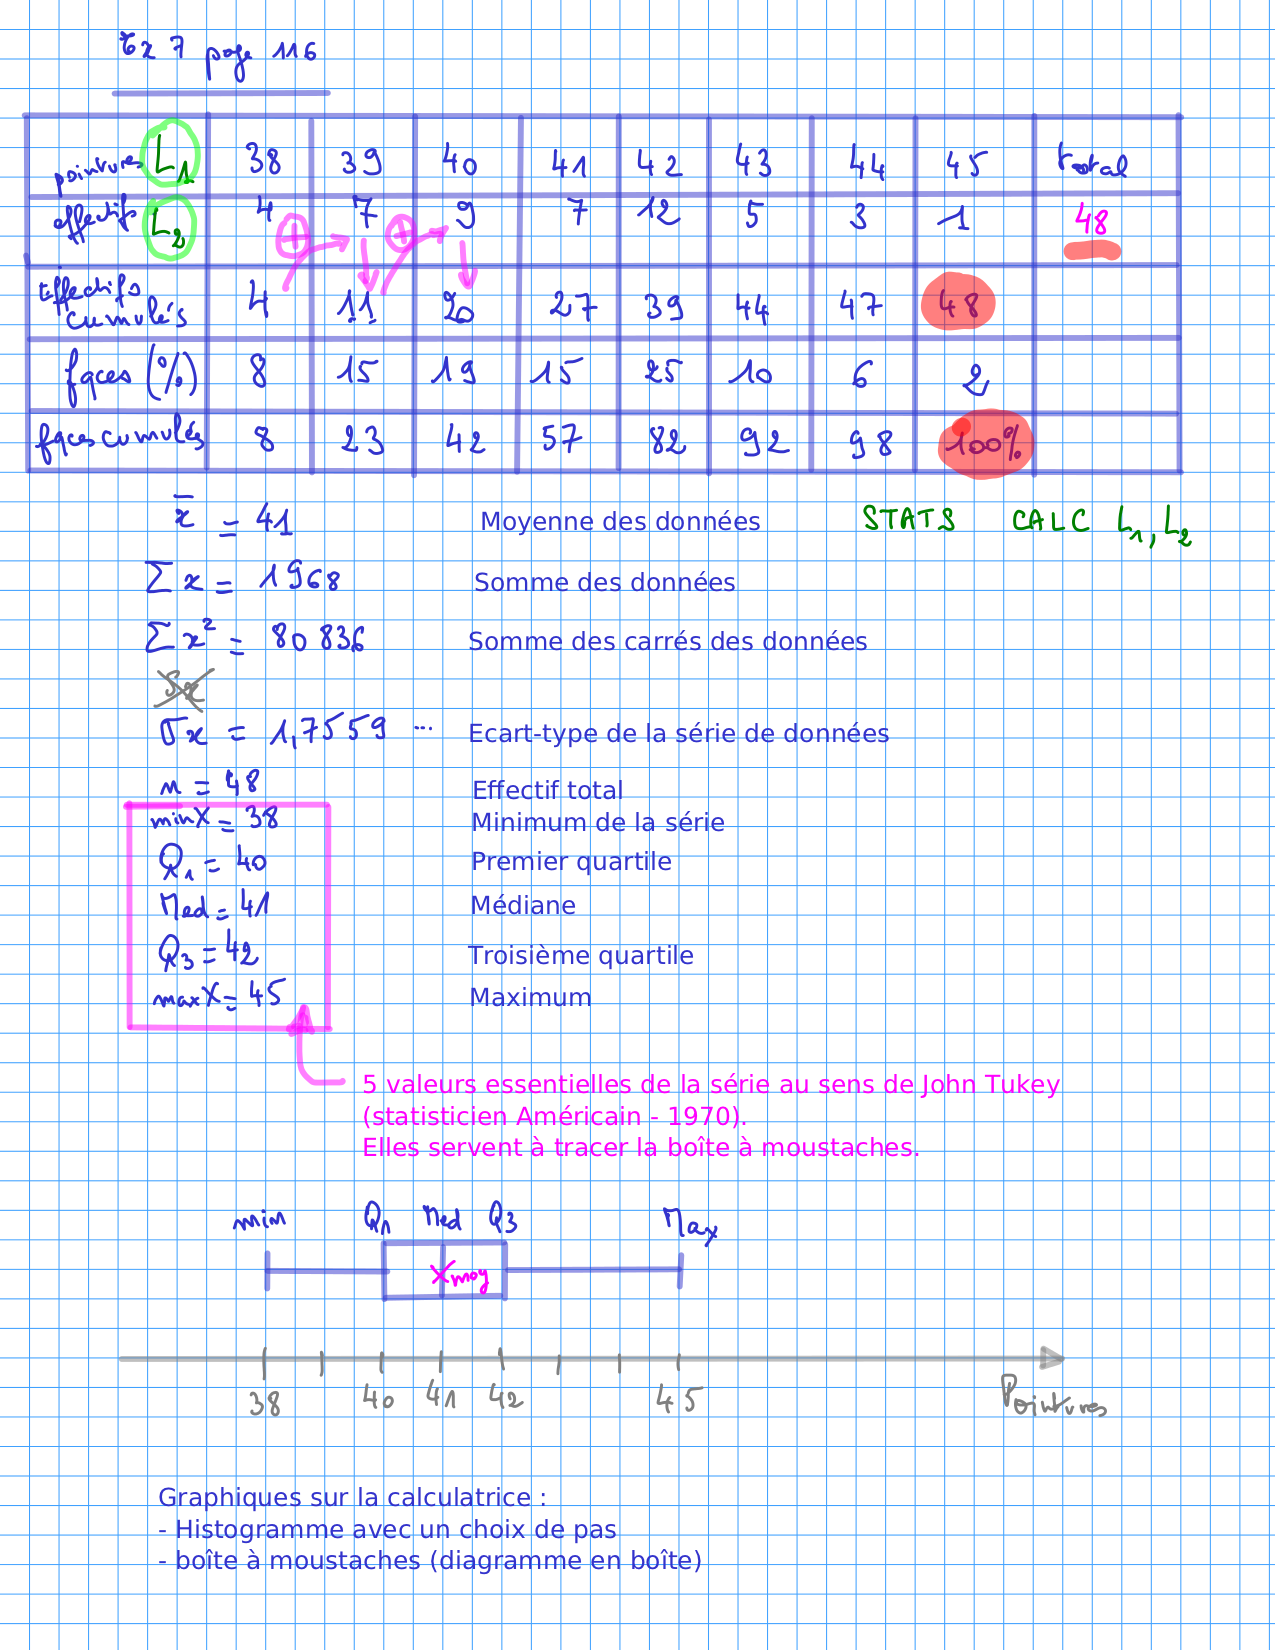 Ex 7 page 116
pointures L1 38 39 40 41 42 43 44 45 total
effectifs L2 4 7 9 7 12 5 3 1 48
+ +
Effectifs cumulés 4 11 20 27 39 44 47 48
fqces (%) 8 15 19 15 25 10 6 2
fqces cumulés 8 23 42 57 82 92 98 100%
x̄ = 41 Moyenne des données STATS CALC L1, L2
Σx = 1968 Somme des données
Σx² = 80 836 Somme des carrés des données
Sx
σx = 1,7559 ... Ecart-type de la série de données
n = 48 Effectif total
minX = 38 Minimum de la série
Q1 = 40 Premier quartile
Med = 41 Médiane
Q3 = 42 Troisième quartile
maxX = 45 Maximum
5 valeurs essentielles de la série au sens de John Tukey
(statisticien Américain - 1970).
Elles servent à tracer la boîte à moustaches.
min Q1 Med Q3 Max
X moy
38 40 41 42 45 Pointures
Graphiques sur la calculatrice :
- Histogramme avec un choix de pas
- boîte à moustaches (diagramme en boîte)